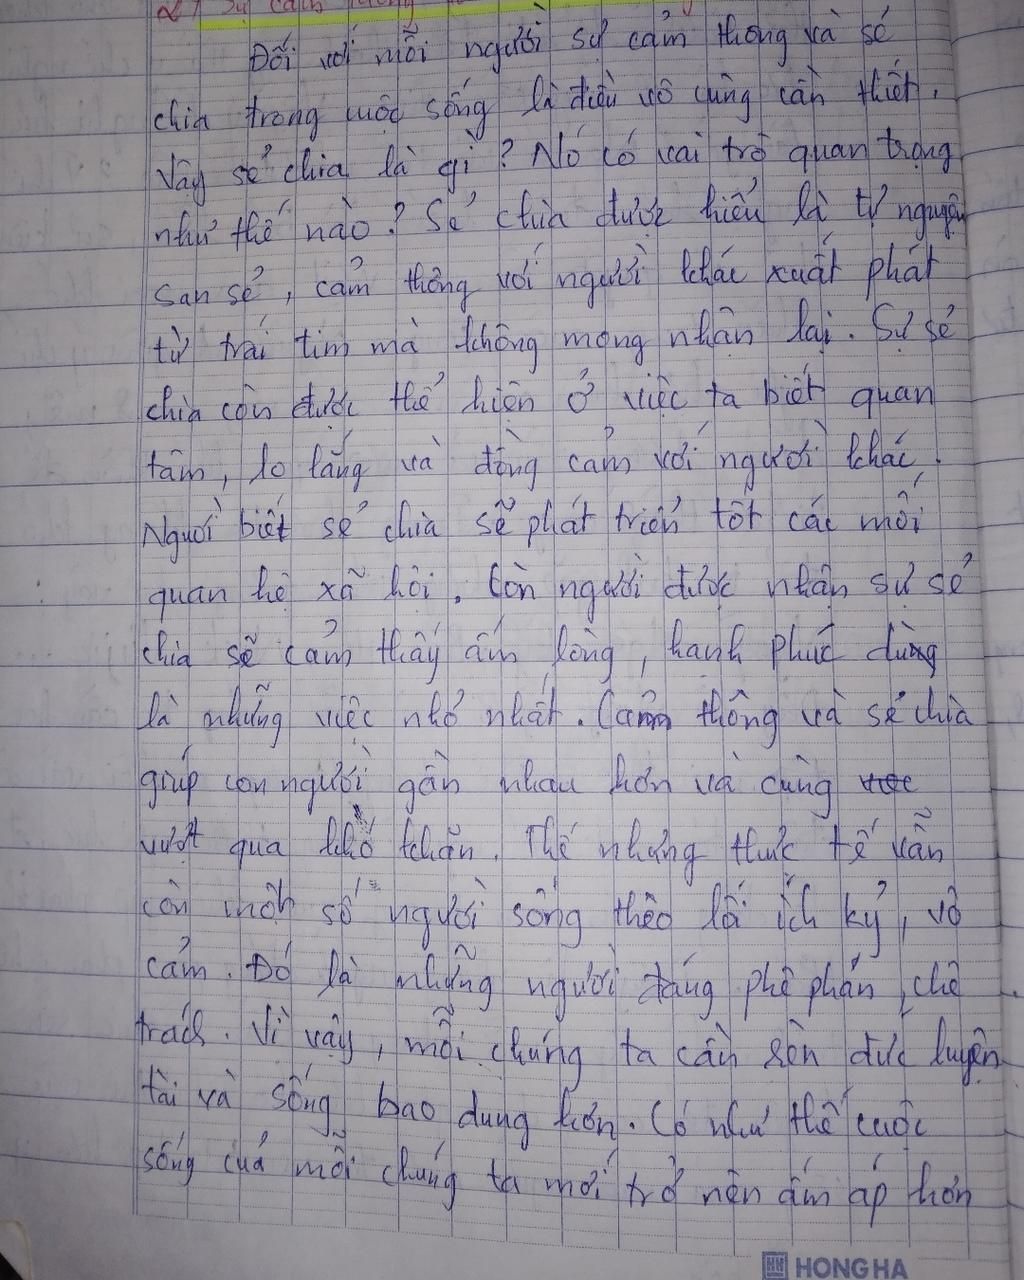 Đối với mỗi người sự cảm thông và sẻ
chia trong cuộc sống là điều vô cùng cần thiết.
Vậy sẻ chia là gì? Nó có vai trò quan trọng
như thế nào? Sẻ chia được hiểu là tự nguyện
san sẻ, cảm thông với người khác xuất phát
từ trái tim mà không mong nhận lại. Sự sẻ
chia còn được thể hiện ở việc ta biết quan
tâm, lo lắng và đồng cảm với người khác.
Người biết sẻ chia sẽ phát triển tốt các mối
quan hệ xã hội. Còn người được nhận sự sẻ
chia sẽ cảm thấy ấm lòng, hạnh phúc dù
là những việc nhỏ nhất. Cảm thông và sẻ chia
giúp con người gần nhau hơn và cùng
vượt qua khó khăn. Thế nhưng thực tế vẫn
còn một số người sống theo lối ích kỷ, vô
cảm. Đó là những người đáng phê phán, chê
trách. Vì vậy, mỗi chúng ta cần rèn đức luyện
tài và sống bao dung hơn. Có như thế cuộc
sống của mỗi chúng ta mới trở nên ấm áp hơn
HONG HA